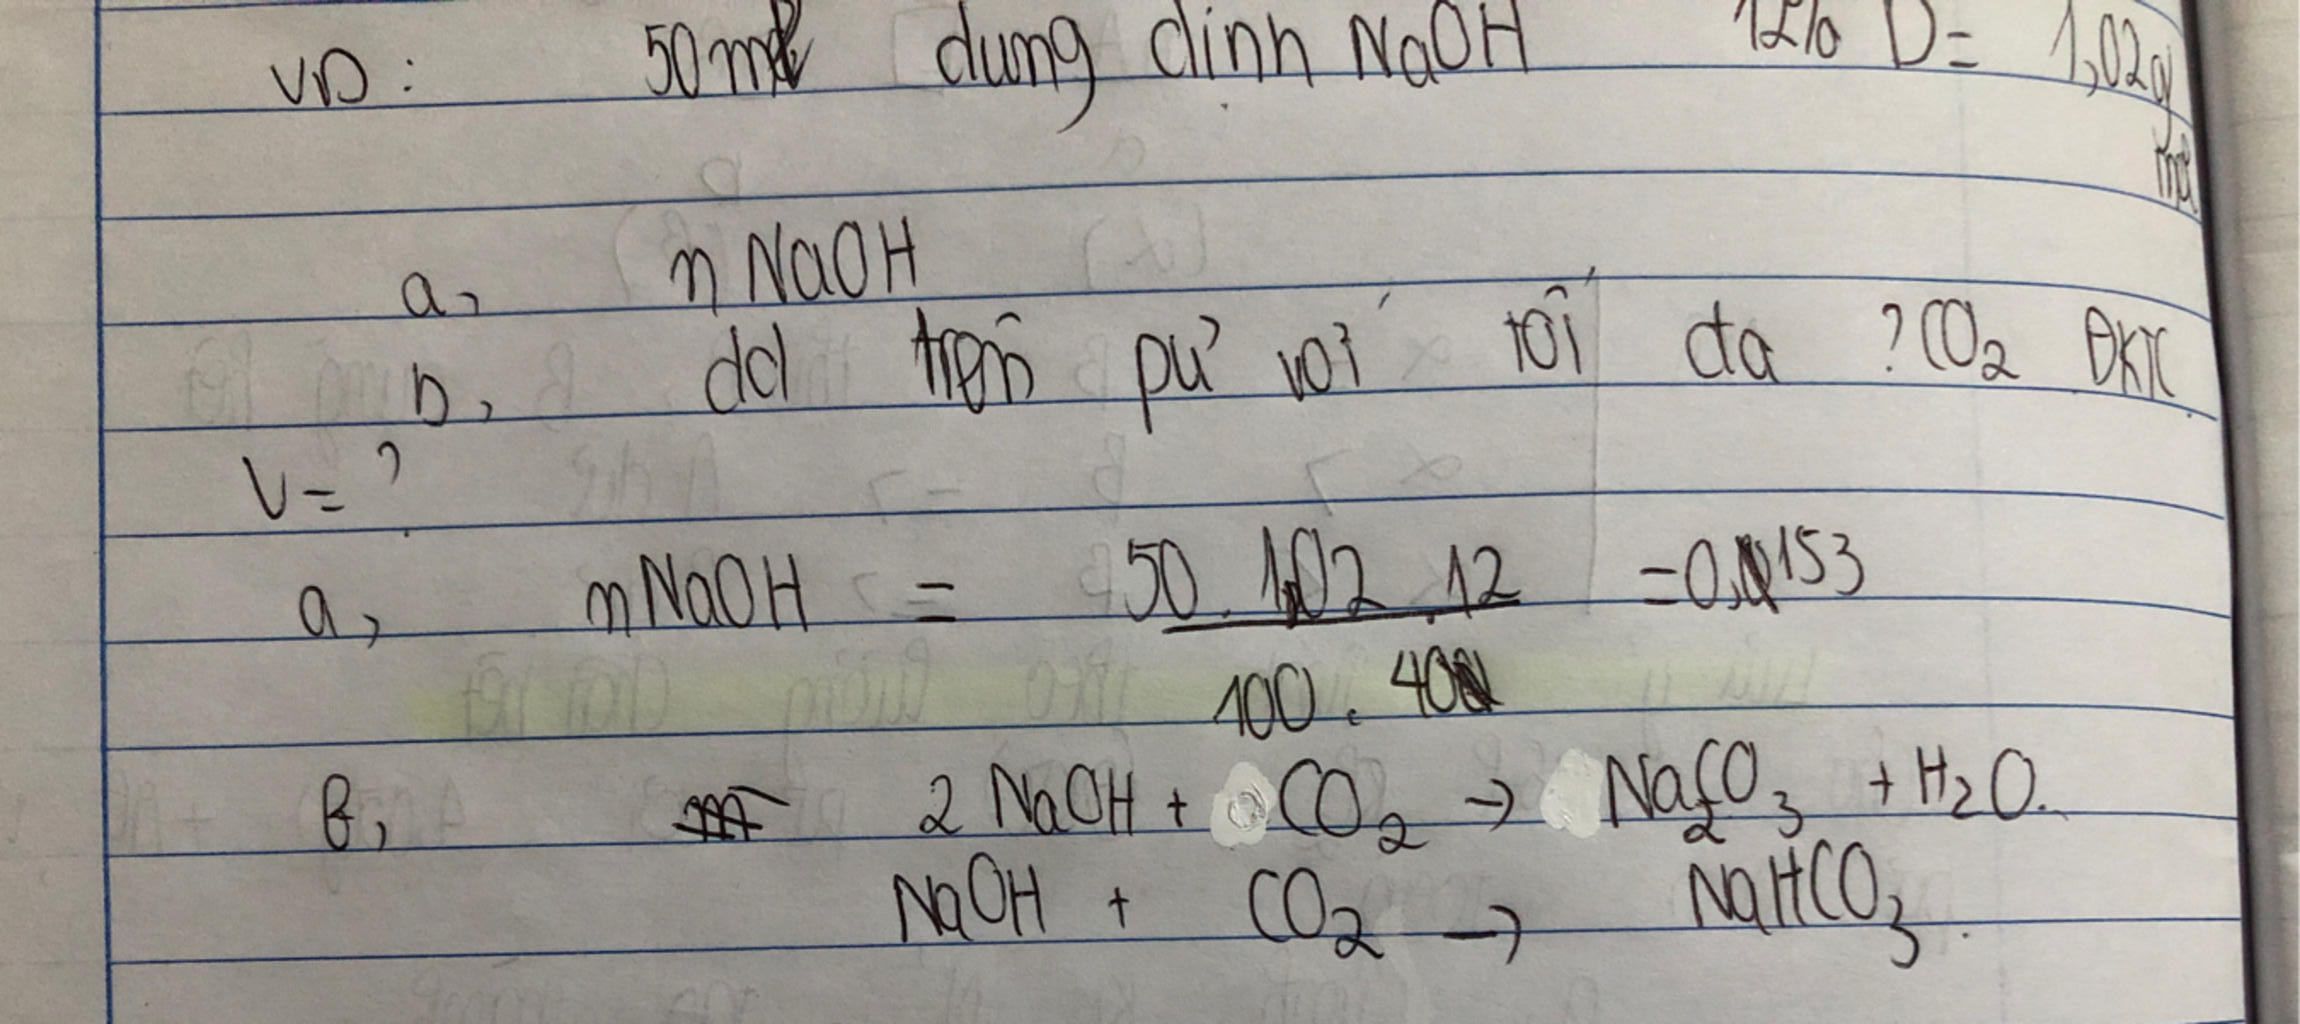 VD: 50ml dung dịnh NaOH 12% D = 1,02g/ml
a, n NaOH
b, dd trên pứ với tối đa ? CO2 ĐKTC
V = ?
a, nNaOH = 50 . 1,02 . 12 = 0,153
100 . 40
b, 2 NaOH + CO2 → Na2CO3 + H2O.
NaOH + CO2 → NaHCO3.